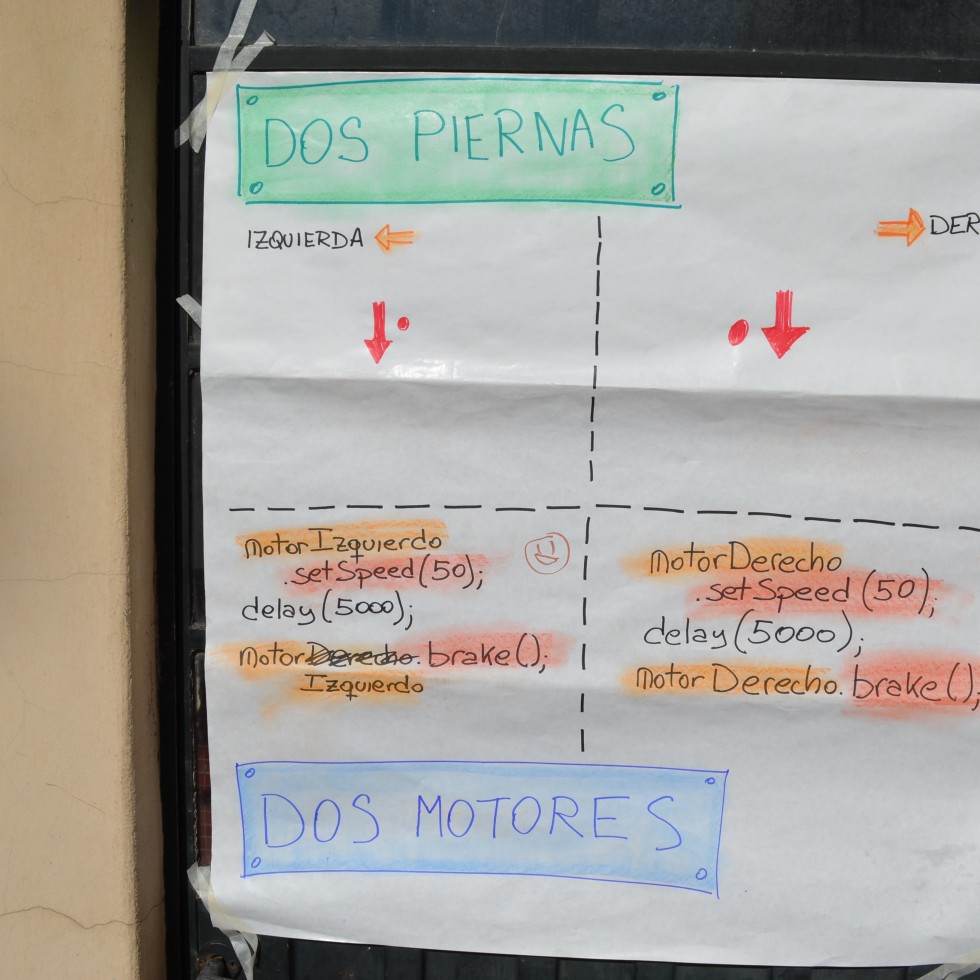 DOS PIERNAS
IZQUIERDA
DER
motorIzquierdo
.setSpeed(50);
delay(5000);
motorDerecho.brake();
Izquierdo
motorDerecho
.setSpeed(50);
delay(5000);
motorDerecho.brake();
DOS MOTORES